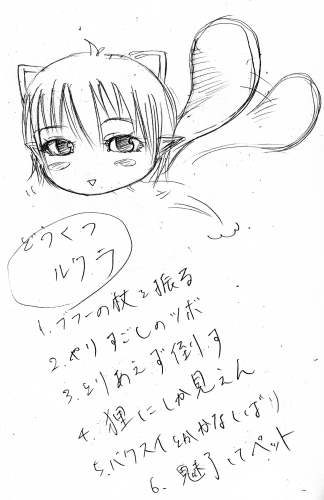 どつくつ
ルクラ
1. ブフーの杖を振る
2. やりすごしのツボ
3. とりあえず倒す
4. 狸にしか見えん
5. バクスイとかかなしばり
6. 魅了してペット